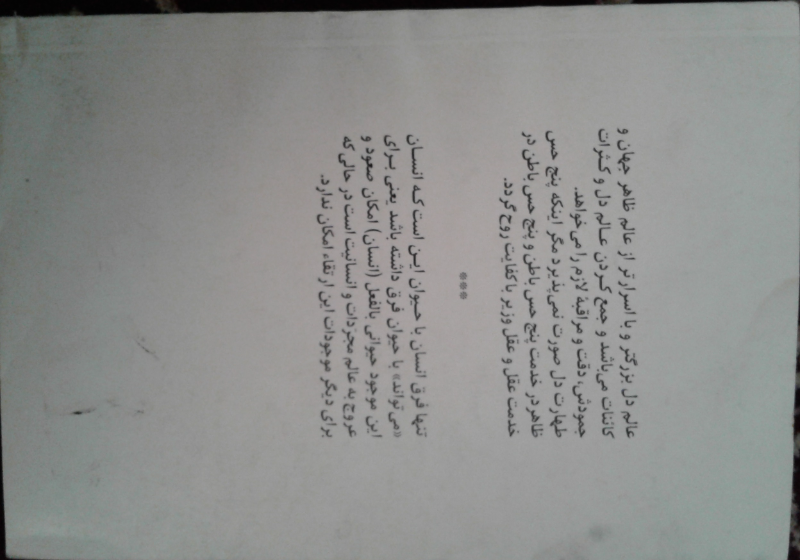 عالم دل بزرگتر و با اسرارتر از عالم ظاهر جهان و
کائنات می‌باشد و جمع کردن عالم دل و کثرات
جمودش، دقت و مراقبهٔ لازم را می‌خواهد.
طهارت دل صورت نمی‌پذیرد مگر اینکه پنج حس
ظاهر در خدمت پنج حس باطن و پنج حس باطن در
خدمت عقل و عقل وزیر با کفایت روح گردد.
***
تنها فرق انسان با حیوان این است که انسان
«می‌تواند» با حیوان فرق داشته باشد یعنی برای
این موجود حیوانی بالفعل (انسان) امکان صعود و
عروج به عالم مجردات و انسانیت است در حالی که
برای دیگر موجودات این ارتقاء امکان ندارد.